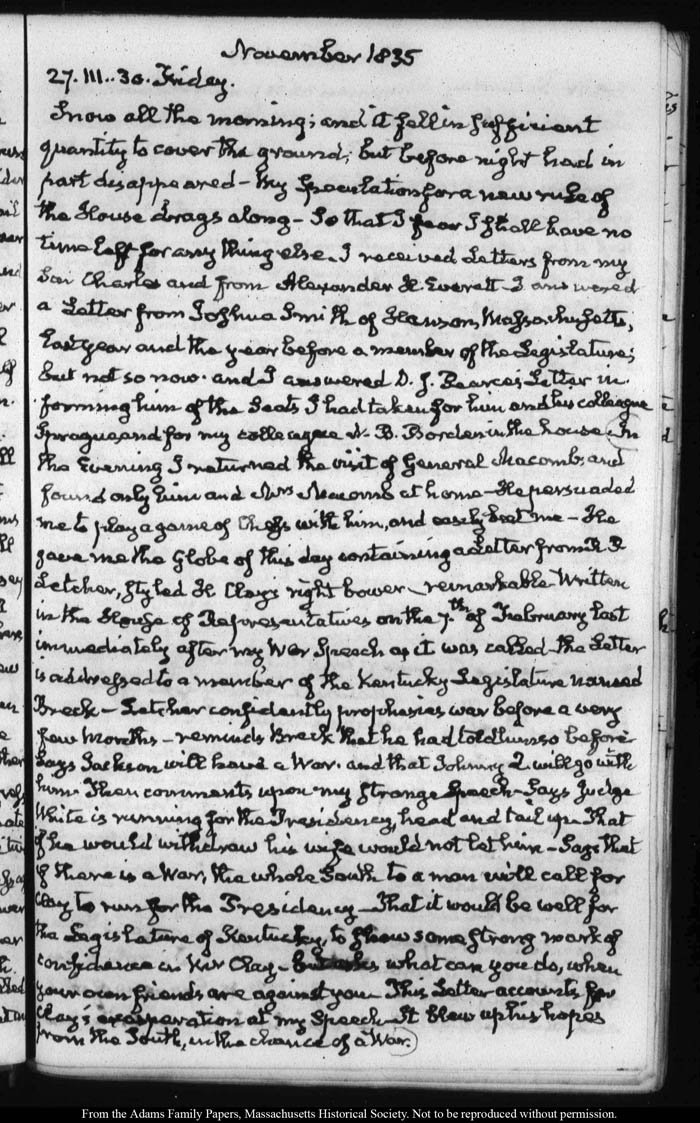 November 1835
27. III..30. Friday.
Snow all the morning; and it fell in sufficient
quantity to cover the ground; but before night had in
part disappeared – My Speculation for a new rule of
the House drags along – So that I fear I shall have no
time left for any thing else. I received Letters from my
Son Charles and from Alexander H. Everett – I answered
a Letter from Joshua Smith of Hanson, Massachusetts,
last year and the year before a member of the Legislature;
but not so now. and I answered D. J. Pearce's Letter in
forming him of the Seats I had taken for him and his colleague
Sprague and for my colleague N. B. Borden in the house – In
the Evening I returned the visit of General Macomb, and
found only him and Mrs Macomb at home – He persuaded
me to play a game of Chess with him, and easily beat me – He
gave me the Globe of this day containing a Letter from R. P.
Letcher, styled H Clay's right bower – remarkable – Written
in the House of Representatives on the 7.th of February last
immediately after my War Speech as it was called – the Letter
is addressed to a member of the Kentucky Legislature named
Breck – Letcher confidently prophesies war before a very
few Months – reminds Breck that he had told him so before
Says Jackson will have a War. and that Johnny Q will go with
him. Then comments upon my strange Speech – Says Judge
White is running for the Presidency, head and tail up – That
if he would withdraw his wife would not let him – Says that
if there is a War, the whole South to a man will call for
Clay to run for the Presidency – That it would be well for
the Legislature of Kentucky, to show some strong mark of
confidence in Mr Clay – but asks what can you do, when
your own friends are against you – This Letter accounts for
Clay's exasperation at my Speech – It blew up his hopes
from the South, in the chance of a War.
From the Adams Family Papers, Massachusetts Historical Society. Not to be reproduced without permission.